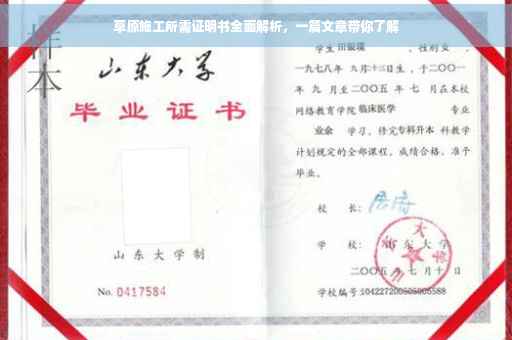 草原施工所需证明书全面解析，一篇文章带你了解
样本
山东大学
毕业证书
山东大学制
No. 0417584
学生 田银瑞 ，性别 女 ，
一九七八年 九月十三日生，于二〇〇一
年 九 月至二〇〇五 年 七 月在本校
网络教育学院 临床医学 专业
业余 学习，修完 专科升本 科教学
计划规定的全部课程，成绩合格，准予
毕业。
校 长：
学 校： 山东大学
二〇〇五 年 七 月 十 日
学校编号: 104227200505005588